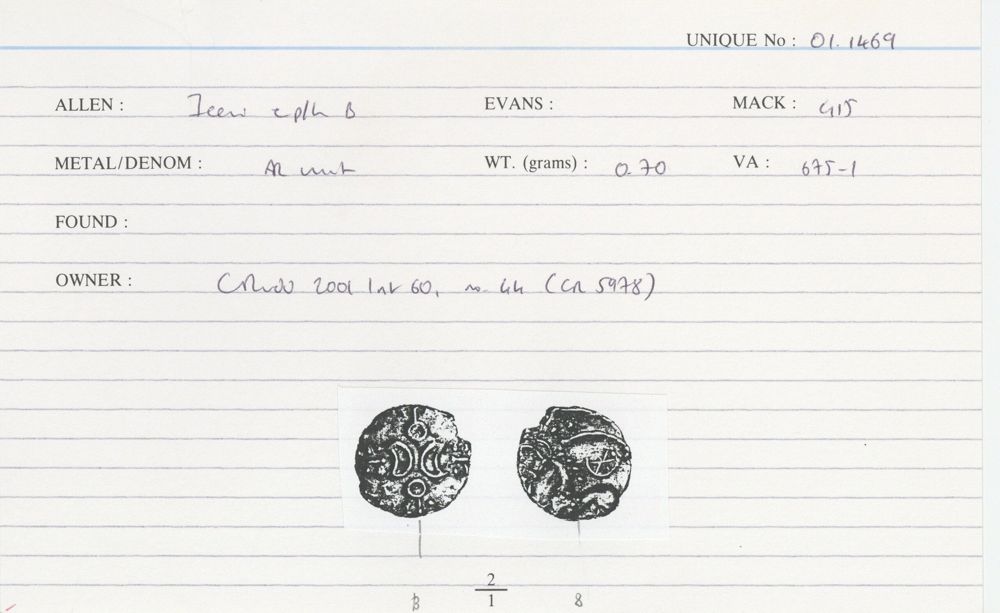 UNIQUE No : 01.1469
ALLEN : Iceni B EVANS : MACK : 415
METAL/DENOM : AR unit WT. (grams) : 0.70 VA : 675-1
FOUND :
OWNER : 2001 list 60, no. 44 (CR 5978)
2
B 1 8